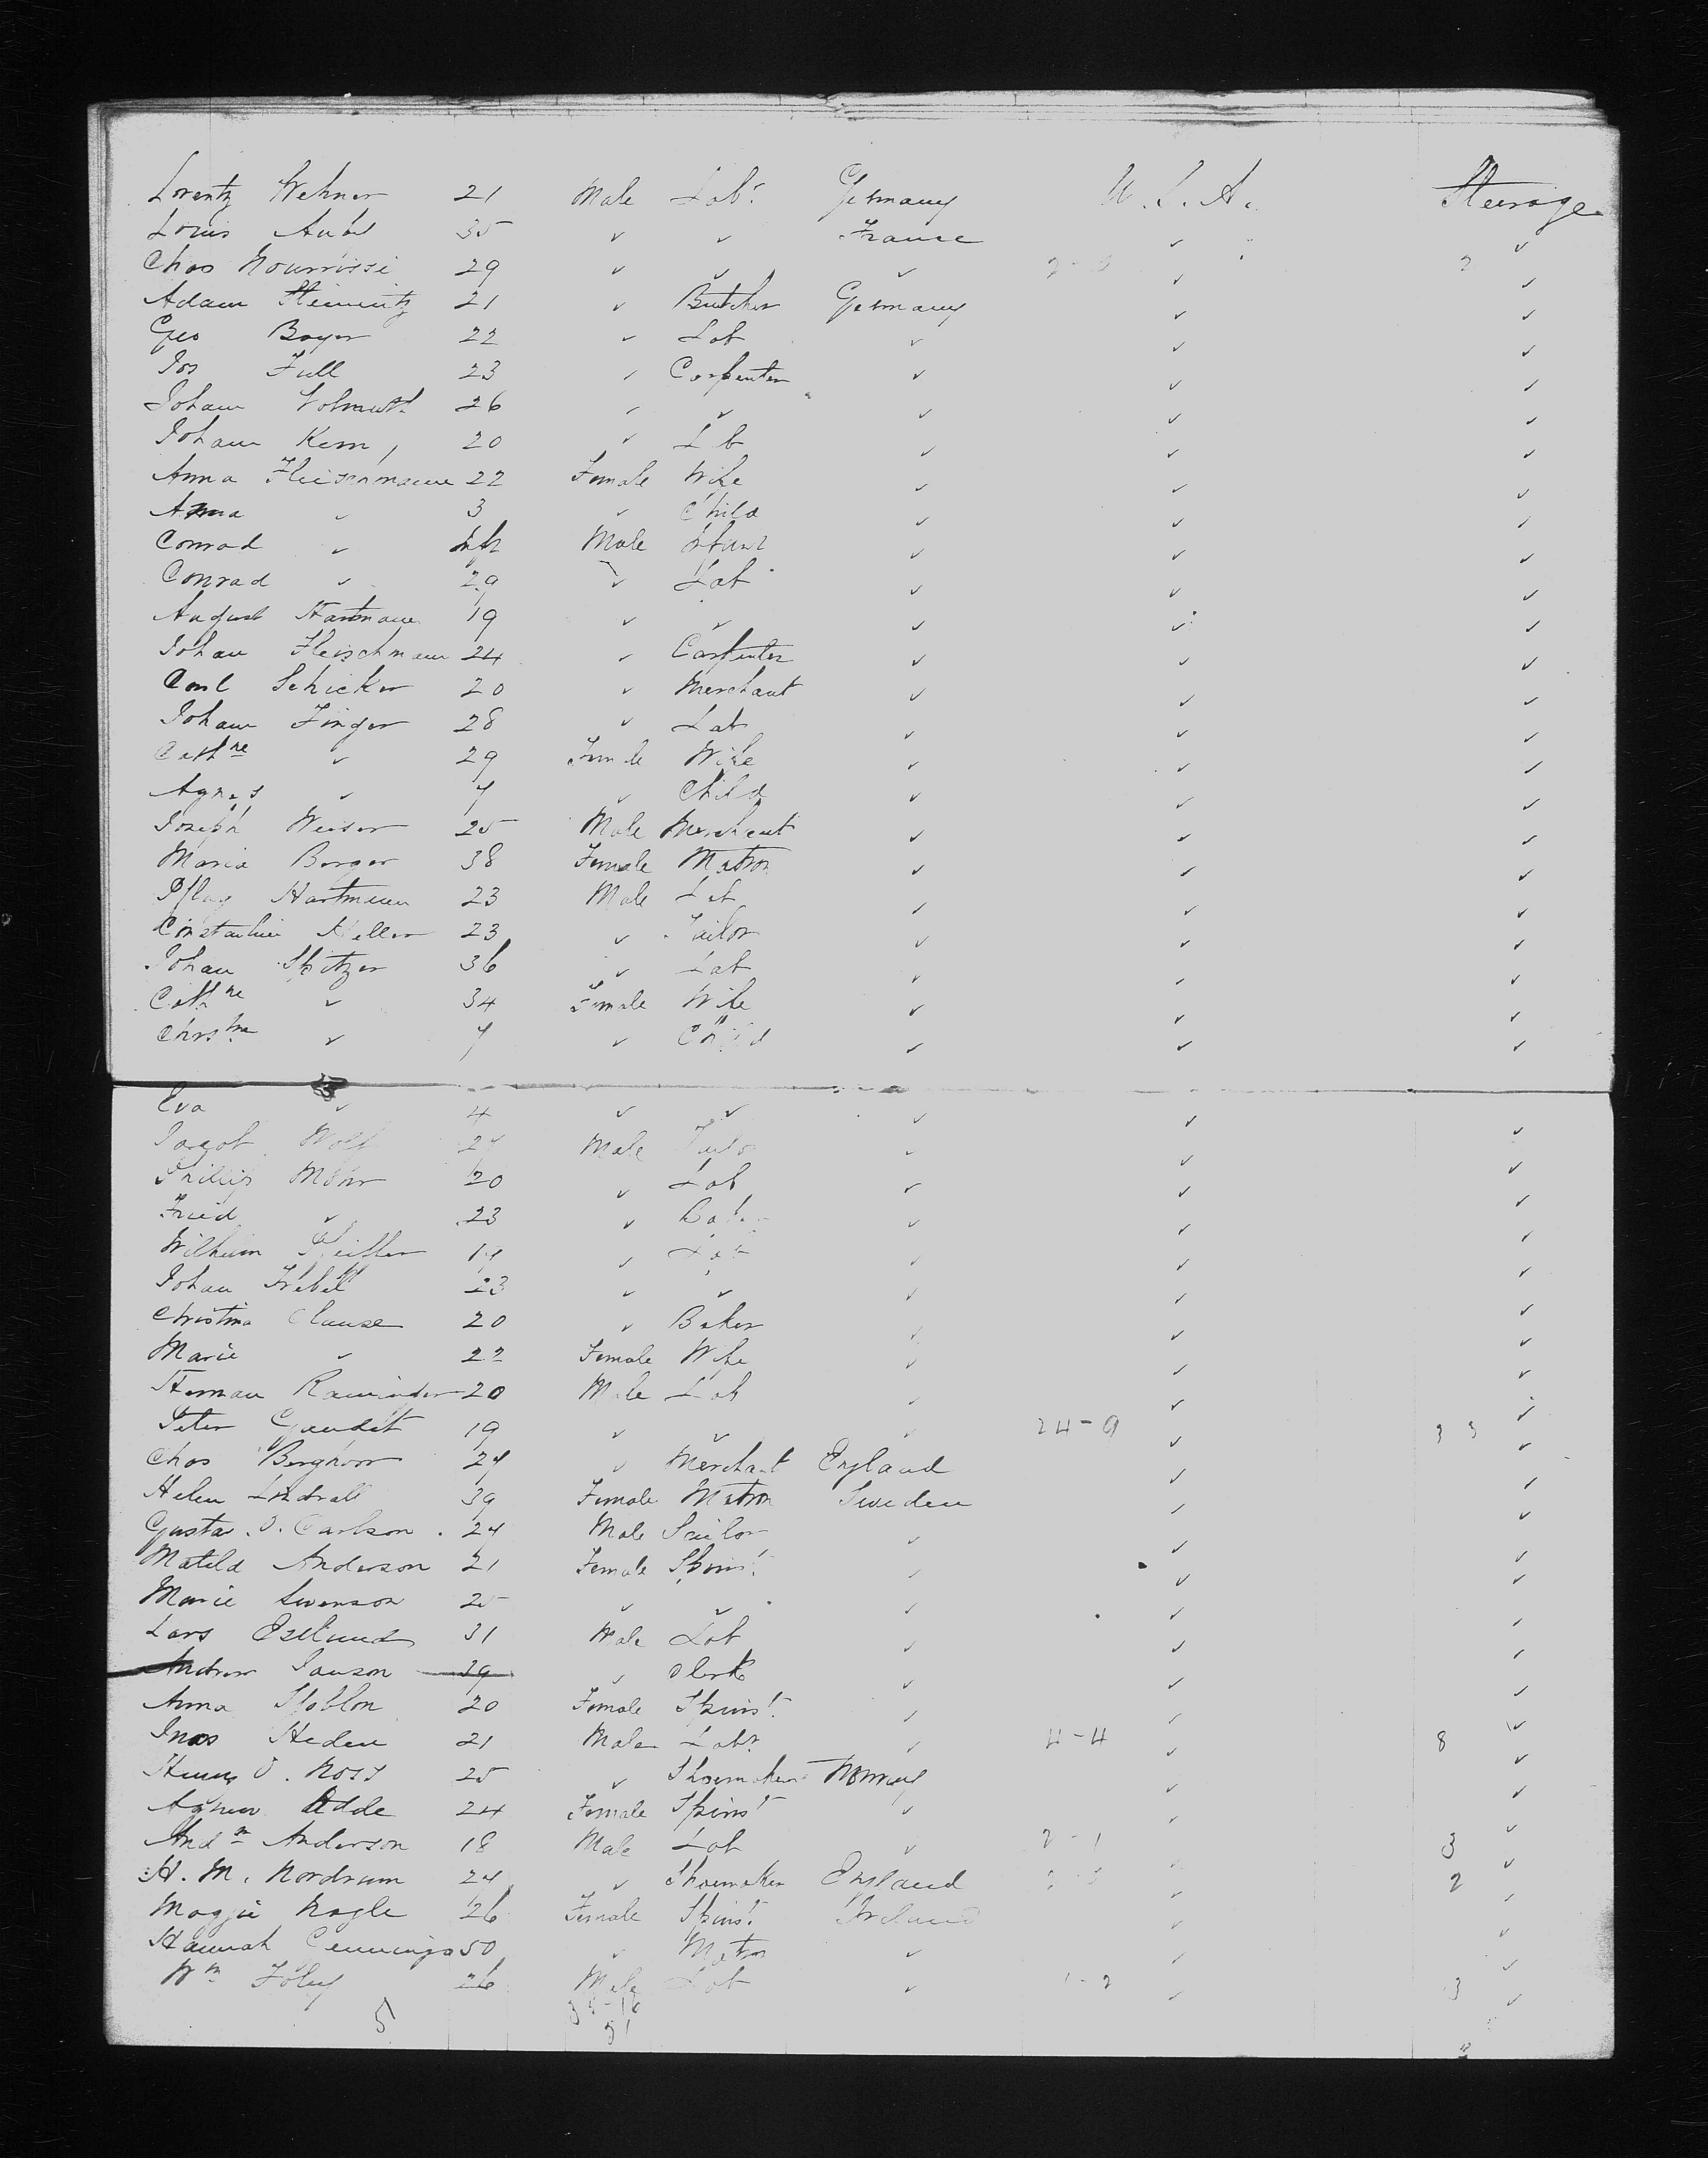 Lorentz Wehner 21 Male Lab.r Germany U.S.A. Steerage
Louis Aubel 35 ✓ ✓ France ✓ ✓
Chas Nourrissé 29 ✓ ✓ ✓ ✓ ✓
Adam 21 ✓ Butcher Germany ✓ ✓
Geo Bayer 22 ✓ Lab ✓ ✓ ✓
Jos Full 23 ✓ Carpenter ✓ ✓ ✓
Johann Volmuth 26 ✓ ✓ ✓ ✓ ✓
Johann Kern 20 ✓ Lab ✓ ✓ ✓
Anna Fleischmann 22 Female Wife ✓ ✓ ✓
Anna ✓ 3 ✓ Child ✓ ✓ ✓
Conrad ✓ Inft Male Infant ✓ ✓ ✓
Conrad ✓ 29 ✓ Lab ✓ ✓ ✓
August Hartmann 19 ✓ ✓ ✓ ✓ ✓
Johan Fleischmann 24 ✓ Carpenter ✓ ✓ ✓
Carl Schicker 20 ✓ Merchant ✓ ✓ ✓
Johann Finger 28 ✓ Lab ✓ ✓ ✓
Cathne ✓ 29 Female Wife ✓ ✓ ✓
Agnes ✓ 7 ✓ Child ✓ ✓ ✓
Joseph Weiser 25 Male Merchant ✓ ✓ ✓
Maria Berger 38 Female Matron ✓ ✓ ✓
Pflug Hartmann 23 Male Lab ✓ ✓ ✓
Constantin Keller 23 ✓ Tailor ✓ ✓ ✓
Johan Spitzer 36 ✓ Lab ✓ ✓ ✓
Cathne ✓ 34 Female Wife ✓ ✓ ✓
Chrstne ✓ 7 ✓ Child ✓ ✓ ✓
Eva ✓ 4 ✓ ✓ ✓ ✓ ✓
Jacob Wolf 27 Male ✓ ✓ ✓
Phillip Mohr 20 ✓ Lab ✓ ✓ ✓
Fried ✓ 23 ✓ ✓ ✓ ✓
Wilhelm Pfeiffer 17 ✓ Lab ✓ ✓ ✓
Johan Frebel 23 ✓ ✓ ✓ ✓ ✓
Christina Clause 20 ✓ Baker ✓ ✓ ✓
Marie ✓ 22 Female Wife ✓ ✓ ✓
Herman 20 Male Lab ✓ ✓ ✓
Peter Gaudet 19 ✓ ✓ ✓ 24-9 ✓ 33 ✓
Chas Berghoor 27 ✓ Merchant England ✓ ✓
Helen Lindvall 39 Female Matron Sweden ✓ ✓
Gustav. O. Carlson 27 Male Sailor ✓ ✓ ✓
Matild Anderson 21 Female Spinst. ✓ ✓ ✓
Marie Swenson 25 ✓ ✓ ✓ ✓ ✓
Lars Eselund 31 Male Lab ✓ ✓ ✓
Andrew Janson 19 ✓ Clerk ✓ ✓ ✓
Anna 20 Female Spinst. ✓ ✓ ✓
Heden 21 Male Labr. ✓ 4-4 ✓ 8 ✓
O. Noss 25 ✓ Shoemaker Norway ✓ ✓
Agnew Adde 24 Female Spinst ✓ ✓ ✓
Andw Anderson 18 Male Lab ✓ 2-1 ✓ 3 ✓
H. M. Nordrum 27 ✓ Shoemaker England ✓ 2 ✓
Maggie Nagle 26 Female Spinst. Ireland ✓ ✓
Hannah Cummings 50 ✓ Matron ✓ ✓ ✓
Wm Foley 26 Male Lab ✓ 1-2 ✓ 3 ✓
51
51